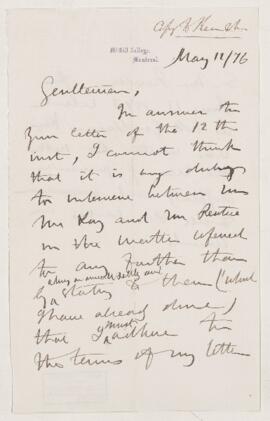 McGill College,
Montreal.
May 12/76
Gentlemen,
In answer to
your letter of the 12th
inst, I cannot think
that it is my duty
to intervene between
Mr Kay and Mr
in the matter referred
to any further than
by stating to them (which
I have already done)
that I must adhere to
the terms of my letter